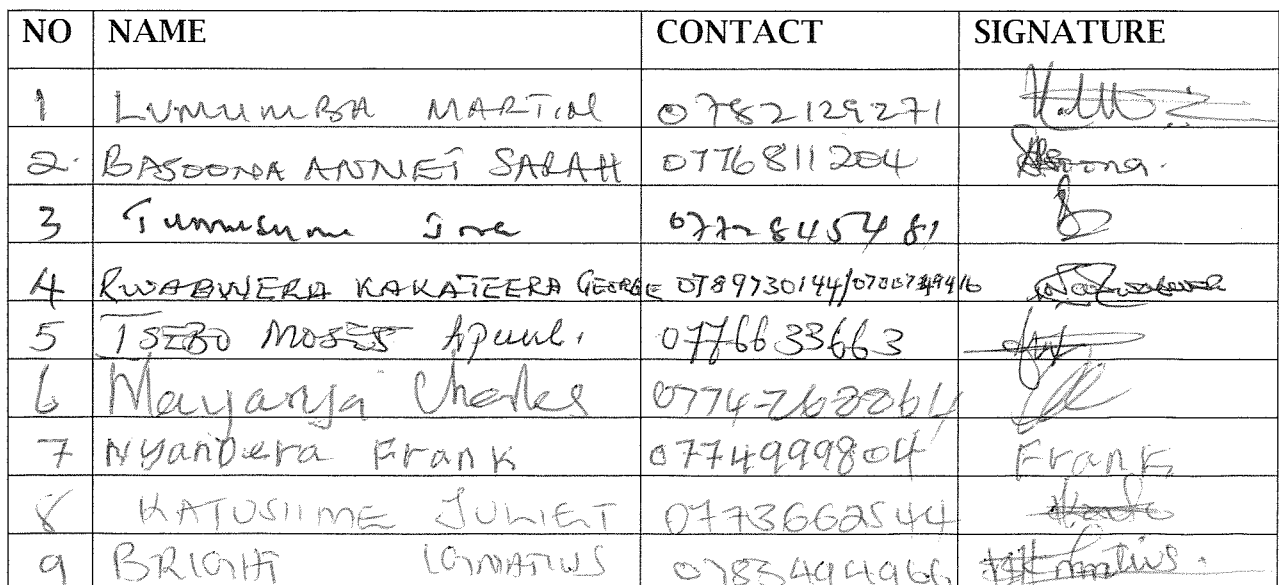 NO NAME CONTACT SIGNATURE
1 LUMUMBA MARTIN 0782129271
2. BASOONA ANNET SARAH 0776811204
3 Tumusiime 0772845481
4 RWABWERA KAKATEERA GEORGE 0789730144/
5 TSEBO MOSES Apuuli. 0776633663
6 Mayanja Charles
7 Nyandera Frank 0774999804 Frank
8 KATUSIIME JULIET 0773662544
9 BRIGHT IGNATIUS 0783494966